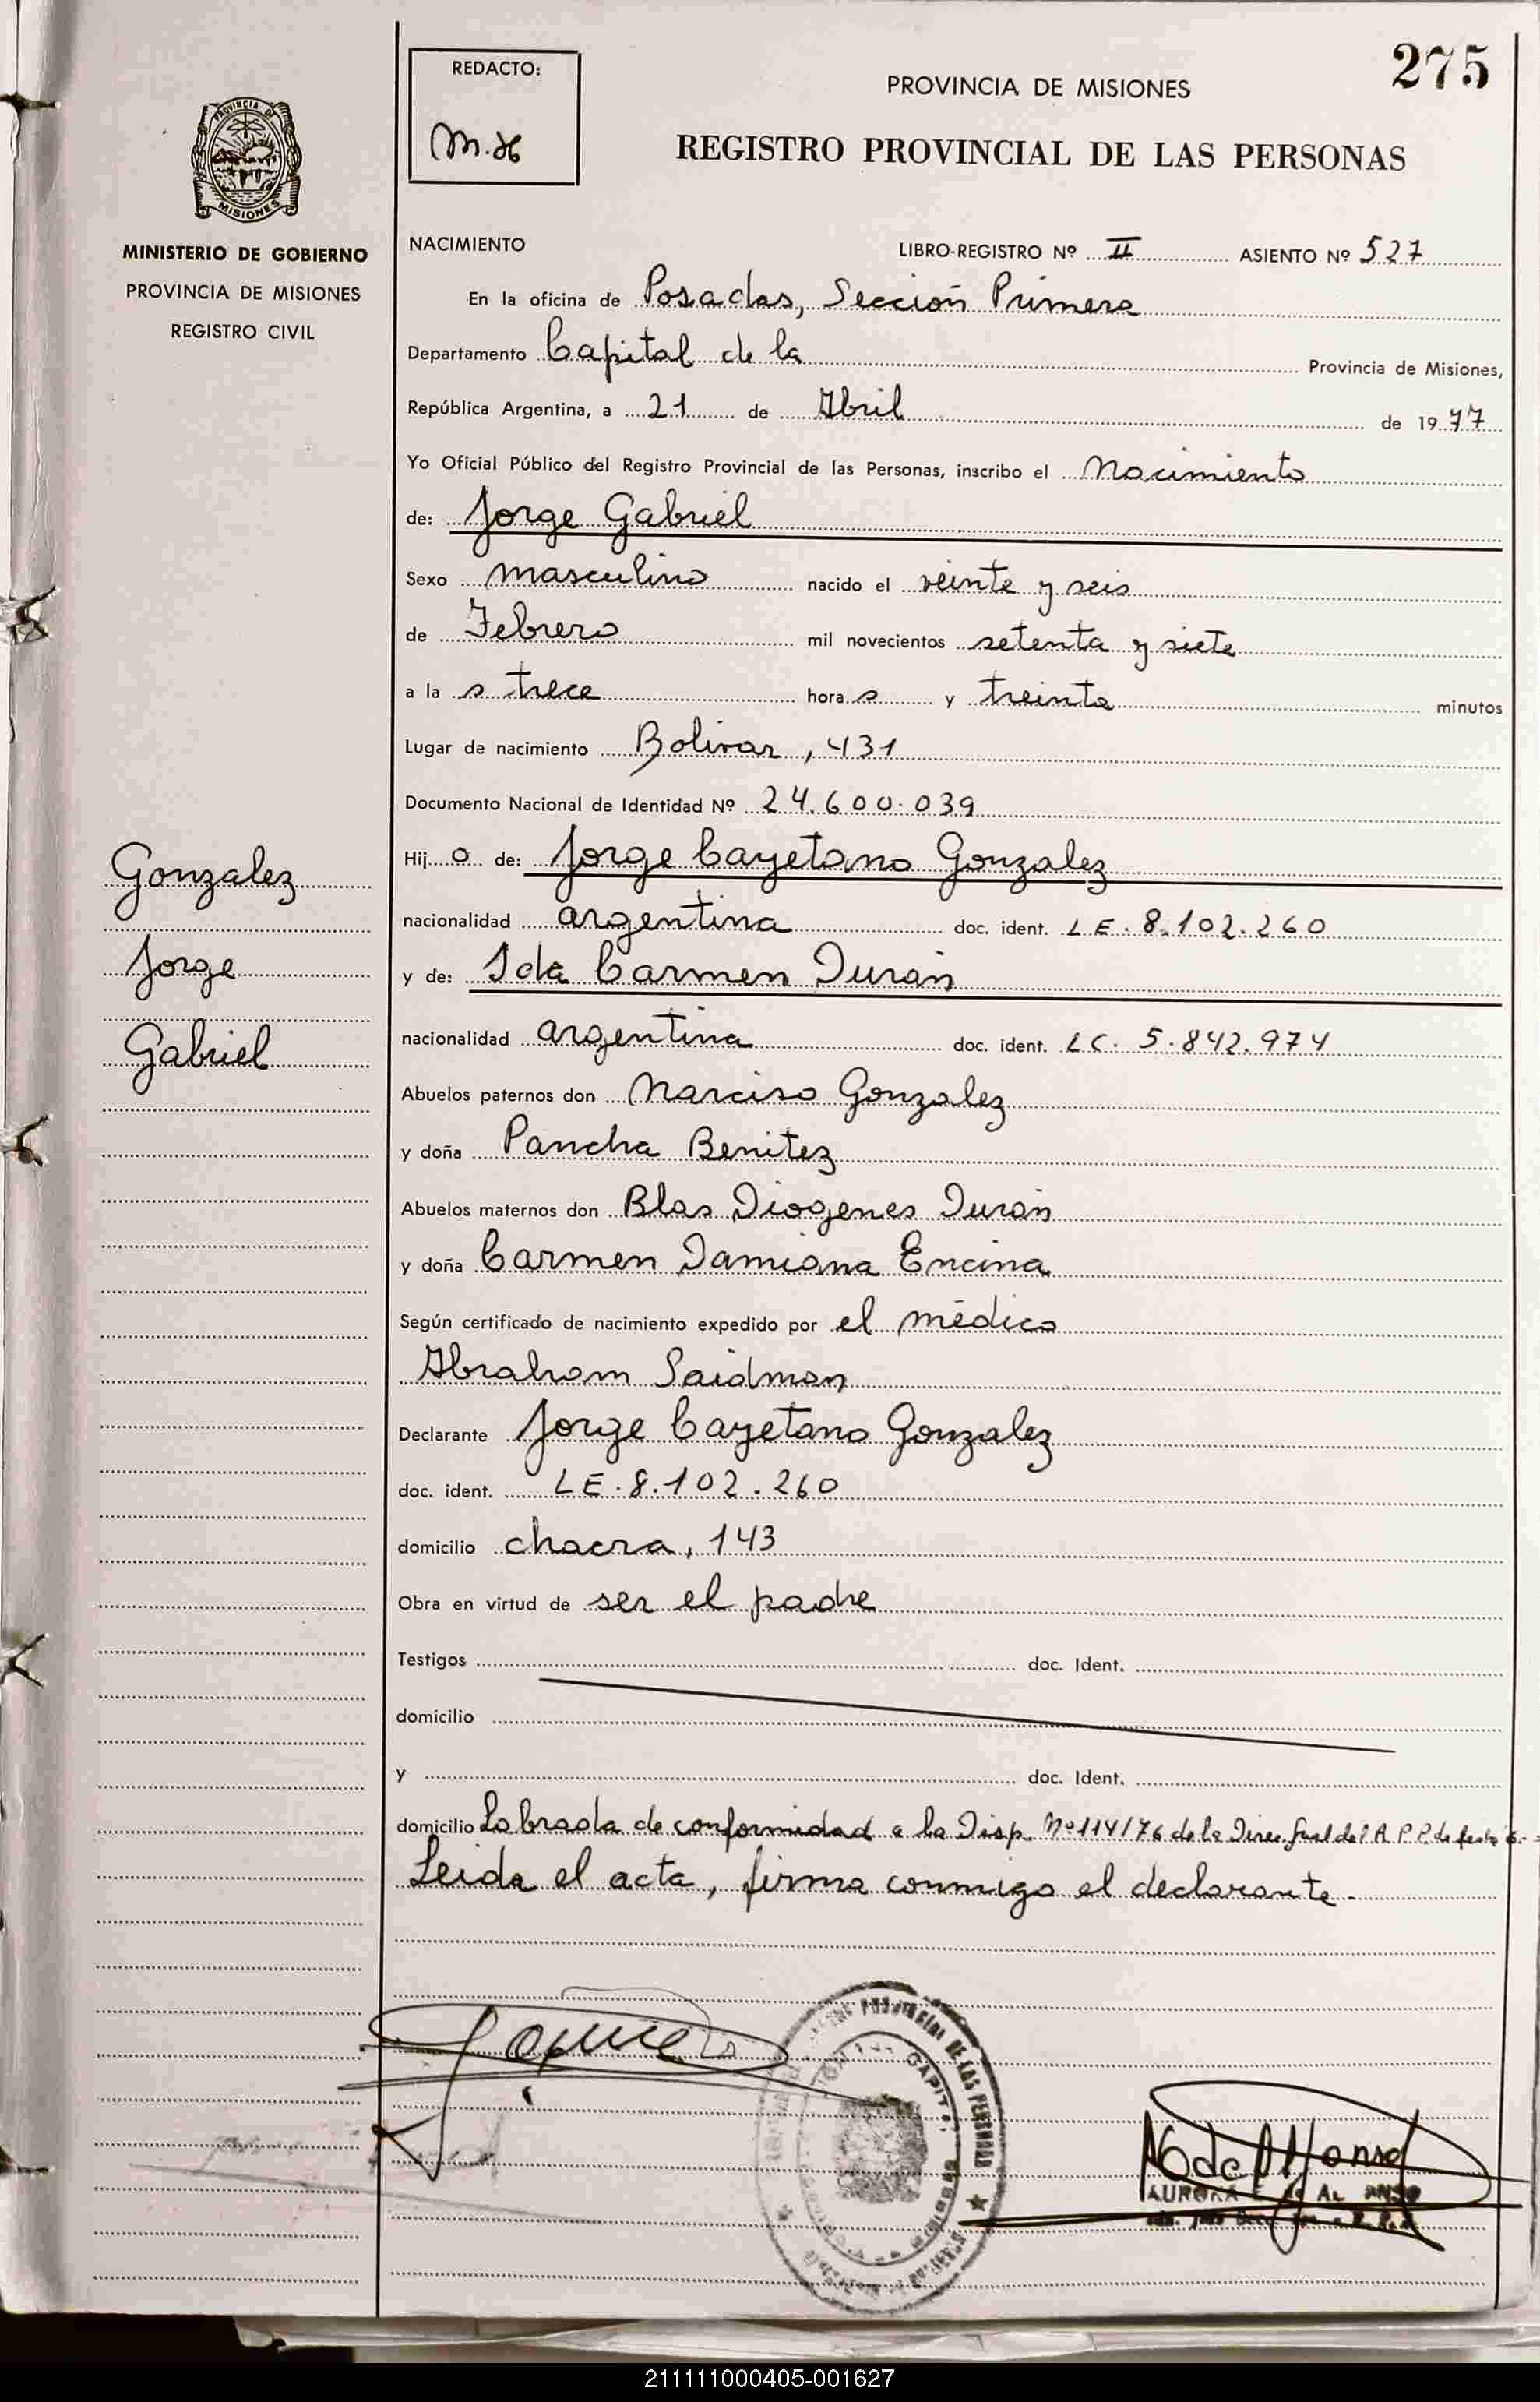 275
REDACTO:
PROVINCIA DE MISIONES
REGISTRO PROVINCIAL DE LAS PERSONAS
PROVINCIA DE
MISIONES
MINISTERIO DE GOBIERNO
PROVINCIA DE MISIONES
REGISTRO CIVIL
NACIMIENTO LIBRO-REGISTRO Nº II ASIENTO Nº 527
En la oficina de Posadas, Sección Primera
Departamento Capital de la Provincia de Misiones,
República Argentina, a 21 de Abril de 1977
Yo Oficial Público del Registro Provincial de las Personas, inscribo el Nacimiento
de: Jorge Gabriel
Sexo masculino nacido el veinte y seis
de Febrero mil novecientos setenta y siete
a la s trece hora s y treinta minutos
Lugar de nacimiento Bolivar, 431
Documento Nacional de Identidad Nº 24.600.039
Hij o de: Jorge Cayetano Gonzalez
nacionalidad argentina doc. ident. LE. 8.102.260
y de: Ida Carmen Durán
nacionalidad argentina doc. ident. LC. 5.842.974
Gonzalez
Jorge
Gabriel
Abuelos paternos don Narciso Gonzalez
y doña Pancha Benitez
Abuelos maternos don Blas Diogenes Durán
y doña Carmen Damiana Encina
Según certificado de nacimiento expedido por el médico
Abraham Saidman
Declarante Jorge Cayetano Gonzalez
doc. ident. LE. 8.102.260
domicilio chacra, 143
Obra en virtud de ser el padre
Testigos doc. Ident.
domicilio
y doc. Ident.
domicilio Labrada de conformidad a la Disp. Nº 114/76 de la Direc. Gral del
Leida el acta, firma conmigo el declarante.
PROVINCIAL DE LAS PERSONAS
AURORA
211111000405-001627